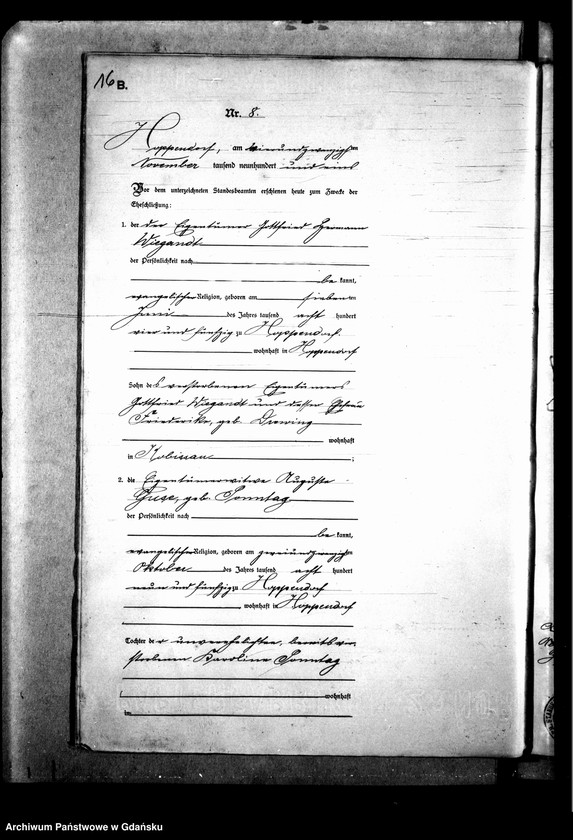 16 B.
Nr. 8.
Hoppendorf, am vierundzwanzigsten
November tausend neunhundert und eins
Vor dem unterzeichneten Standesbeamten erschienen heute zum Zwecke der
Eheschließung:
1. der der Eigentümer Gottfried Hermann
Wiegandt
der Persönlichkeit nach
be kannt,
evangelischer Religion, geboren am sieben ten
Juni des Jahres tausend acht hundert
vier und fünfzig zu Hoppendorf
wohnhaft in Hoppendorf
Sohn des verstorbenen Eigentümers
Gottfried Wiegandt und dessen Ehefrau
Friederike, geb. Drewing
wohnhaft
in Kobissau ;
2. die Eigentümerwitwe Auguste
Guse, geb. Sonntag
der Persönlichkeit nach
be kannt,
evangelischer Religion, geboren am zweiundzwanzigsten
Oktober des Jahres tausend acht hundert
neun und fünfzig zu Hoppendorf
, wohnhaft in Hoppendorf
Tochter der unverehelichten, bereits ver-
storbenen Karoline Sonntag
wohnhaft
in
Archiwum Państwowe w Gdańsku